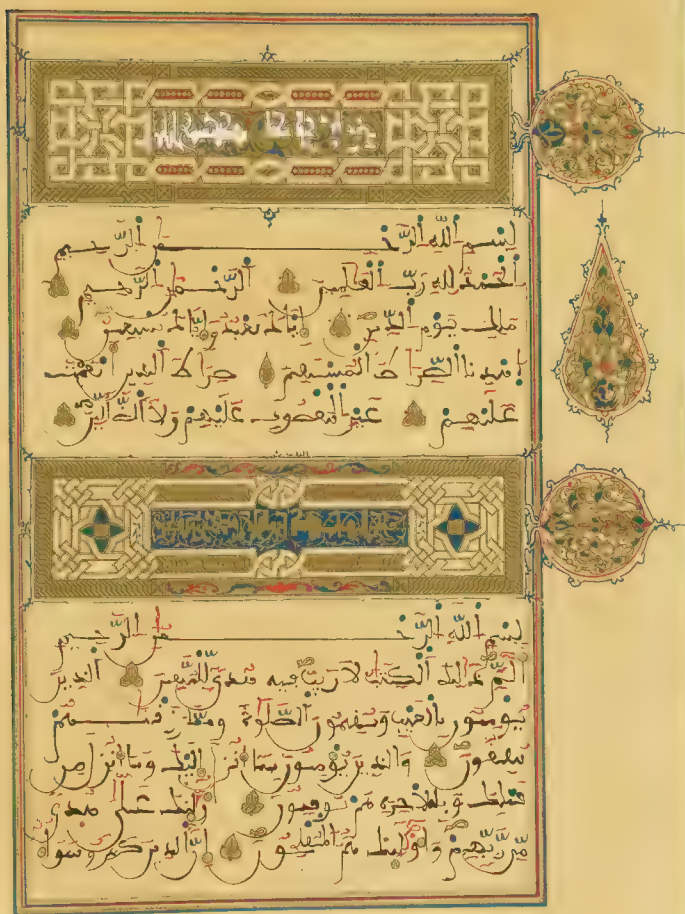 بِسْمِ اللَّهِ الرَّحْمَنِ الرَّحِيمِ
الْحَمْدُ لِلَّهِ رَبِّ الْعَلَمِينَ الرَّحْمَنِ الرَّحِيمِ
مَلِكِ يَوْمِ الدِّينِ إِيَّاكَ نَعْبُدُ وَإِيَّاكَ نَسْتَعِينُ
اهْدِنَا الصِّرَاطَ الْمُسْتَقِيمَ صِرَاطَ الَّذِينَ أَنْعَمْتَ
عَلَيْهِمْ غَيْرِ الْمَغْضُوبِ عَلَيْهِمْ وَلَا الضَّالِّينَ
بِسْمِ اللَّهِ الرَّحْمَنِ الرَّحِيمِ
الم ذَلِكَ الْكِتَبُ لَا رَيْبَ فِيهِ هُدًى لِلْمُتَّقِينَ الَّذِينَ
يُومِنُونَ بِالْغَيْبِ وَيُقِيمُونَ الصَّلَوةَ وَمِمَّا رَزَقْنَهُمْ
يُنْفِقُونَ وَالَّذِينَ يُومِنُونَ بِمَا أُنْزِلَ إِلَيْكَ وَمَا أُنْزِلَ مِنْ
قَبْلِكَ وَبِالْاخِرَةِ هُمْ يُوقِنُونَ أُولَئِكَ عَلَى هُدًى
مِنْ رَبِّهِمْ وَأُولَئِكَ هُمُ الْمُفْلِحُونَ إِنَّ الَّذِينَ كَفَرُوا سَوَا